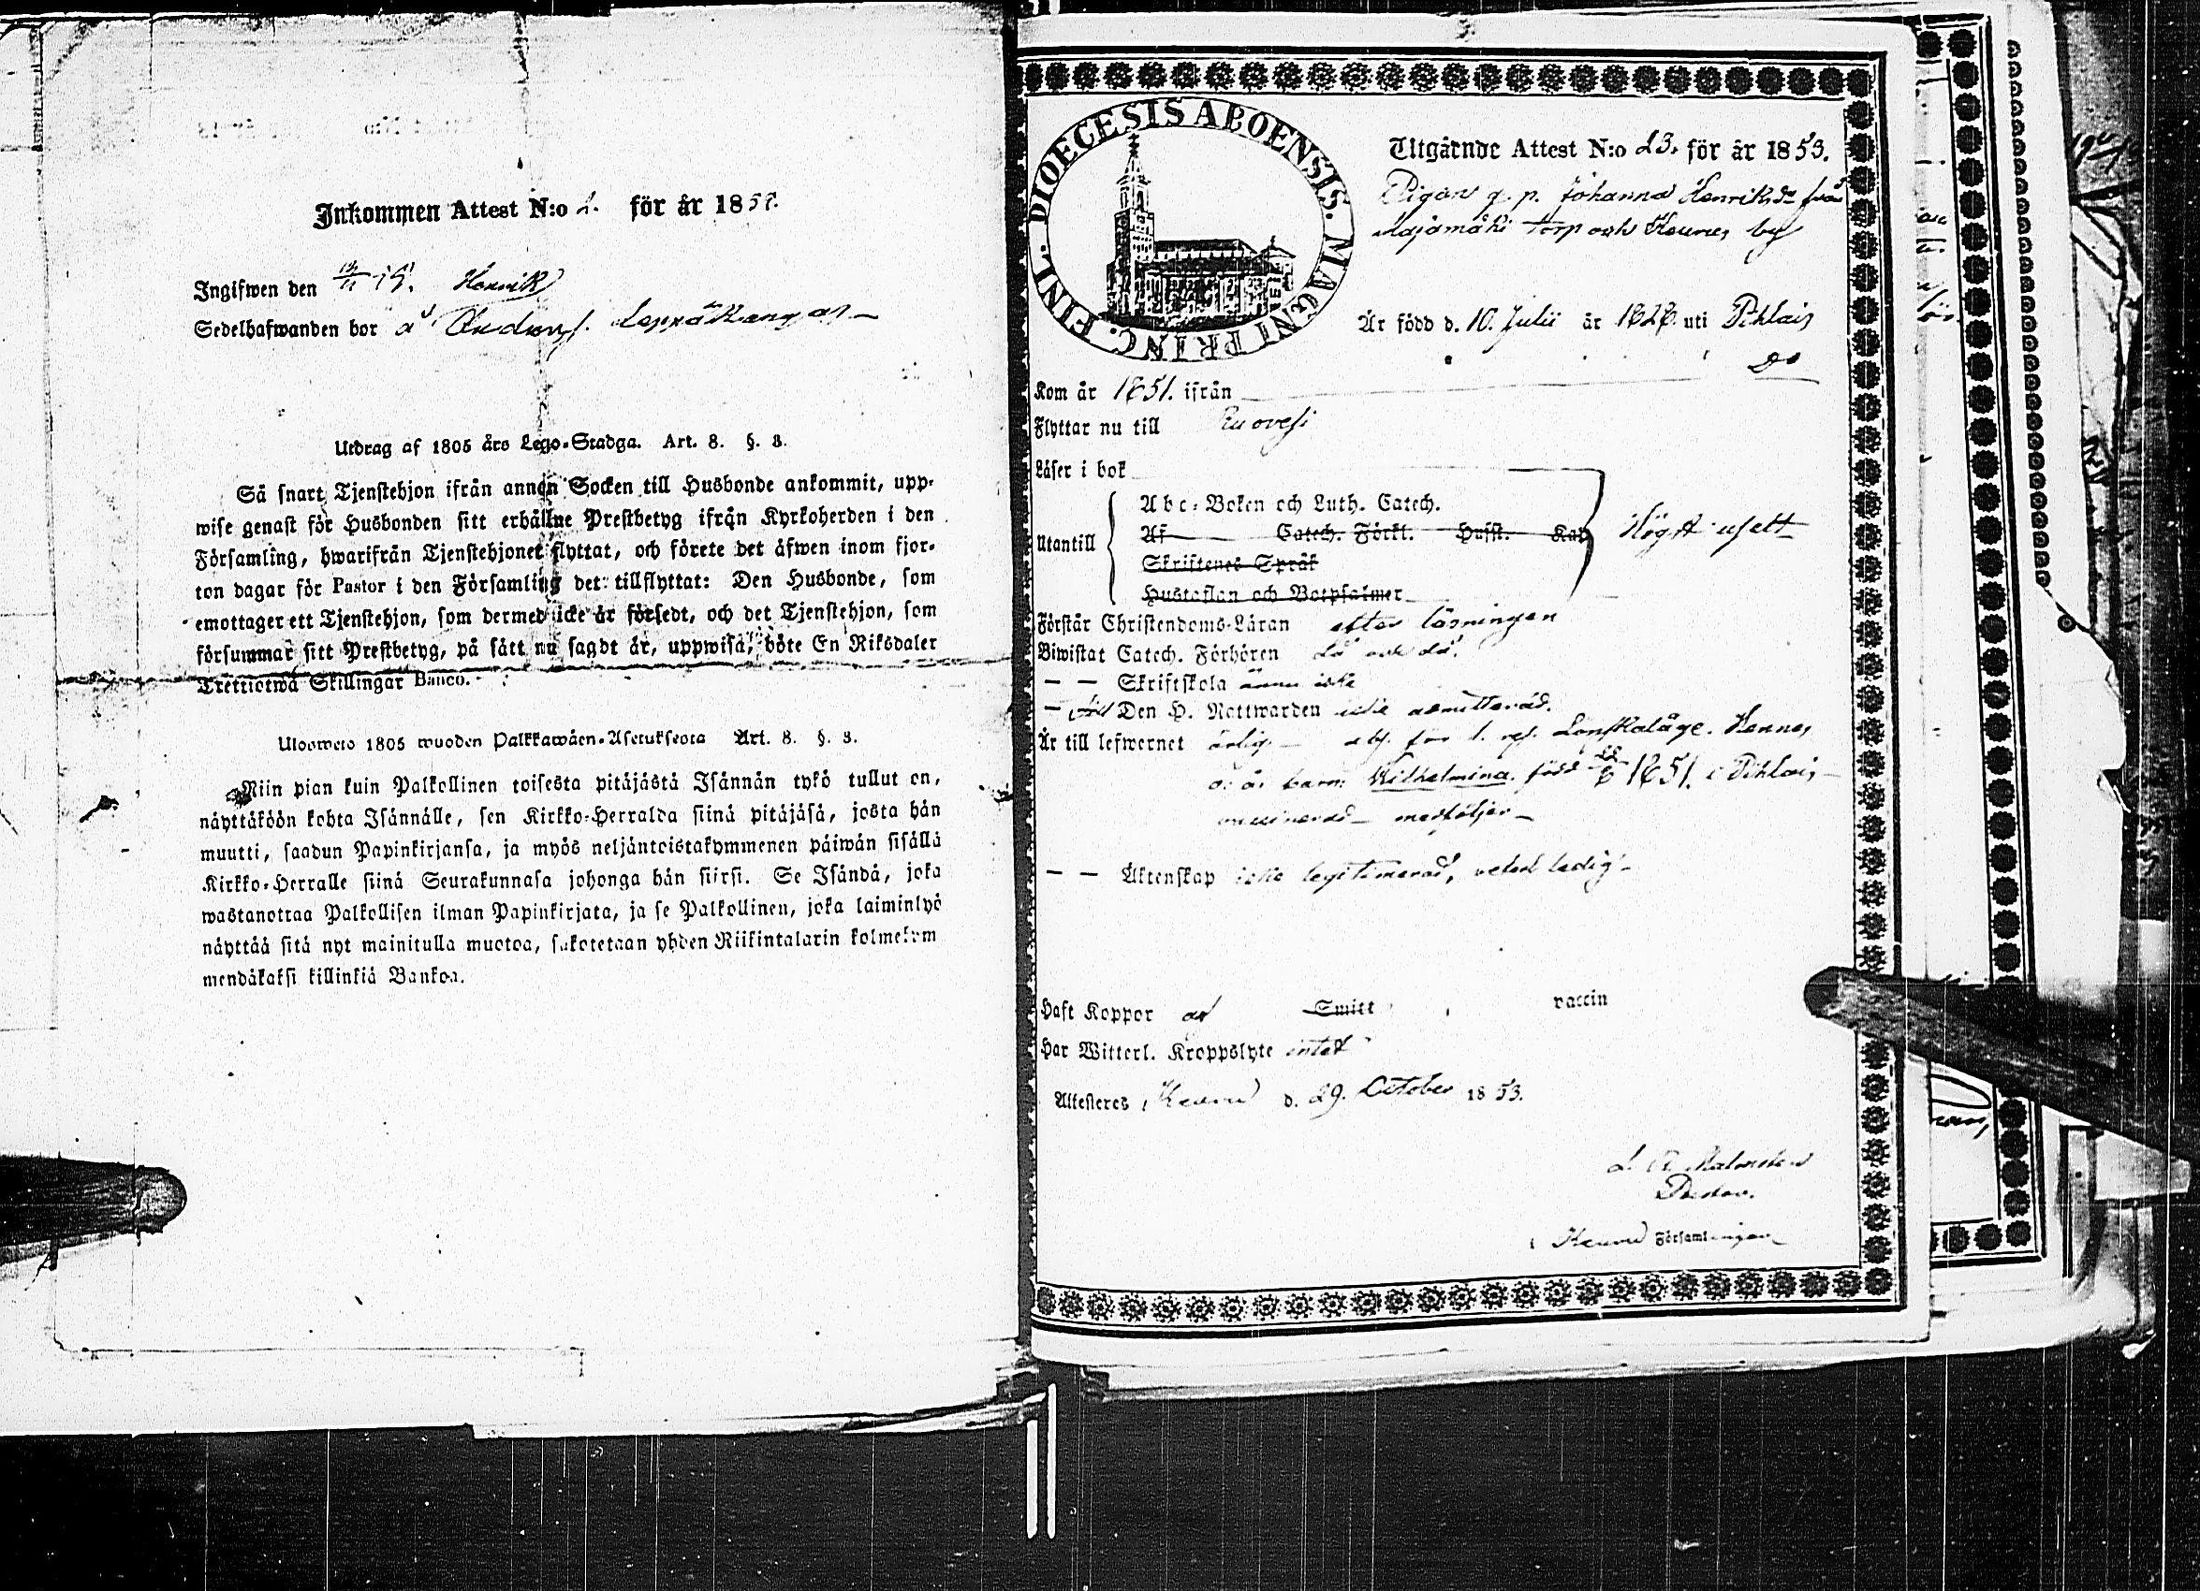 Inkommen Attest N:o 2. för år 185
Ingifwen den 19. Henrik
Sedelhafwanden bor å Leppäkangas
Utdrag af 1805 års Lego-Stadga. Art. 8. §. 8.
Så snart Tjenstehjon ifrån annan Socken till Husbonde ankommit, upp-
wise genast för Husbonden sitt erhållne Prestbetyg ifrån Kyrkoherden i den
Församling, hwarifrån Tjenstehjonet flyttat, och förete det äfwen inom fjor-
ton dagar för Pastor i den Församling det tillflyttat: Den Husbonde, som
emottager ett Tjenstehjon, som dermed icke är försedt, och det Tjenstehjon, som
försummar sitt Prestbetyg, på sätt nu sagdt är, uppwisa, böte En Riksdaler
Trettiotwå Skillingar Banco.
Ulosweto 1805 wuoden Palkkawäen-Asetuksesta Art. 8. §. 8.
Niin pian kuin Palkollinen toisesta pitäjästä Isännän tykö tullut on,
näyttäköön kohta Isännälle, sen Kirkko-Herralda siinä pitäjäsä, josta hän
muutti, saadun Papinkirjansa, ja myös neljäntoistakymmenen päiwän sisällä
Kirkko-Herralle siinä Seurakunnasa johonga hän siirsi. Se Isändä, joka
wastanottaa Palkollisen ilman Papinkirjata, ja se Palkollinen, joka laiminlyö
näyttää sitä nyt mainitulla muotoa, sakotetaan yhden Riikintalarin kolmekym
mendäkaksi killinkiä Bankoa.
DIOECESIS ABOENSIS. MAGNI PRINC. FINL.
Utgående Attest N:o 23. för år 1853.
Pigan q. p. Johanna Henriksdr från
Majamäki torp och Keuru by
Är född d. 10. Julii år 1828 uti Pihlais
Do
Kom år 1851. ifrån
Flyttar nu till Ruovesi
Läser i bok
Utantill
Abc-Boken och Luth. Catech.
Af Catech. Förkl. Hufst. Kap
Skriftenes Språk
Hustaflan och Botpsalmer
Högst uselt
Förstår Christendoms-Läran efter läsningen
Biwistat Catech. Förhören då och då.
— — Skriftskola ännu icke
— till Den H. Nattwarden icke admitterad.
Är till lefwernet ärlig — abs. för 1. res. Lönskaläge. Hennes
o. ä. barn Wilhelmina född 1851. i Pihlais
vaccinerad — medföljer —
— — Äktenskap icke legitimerad, veterl. ledig —
Haft Koppor af Smitt vaccin
Har Witterl. Kroppslyte intet
Attesteres, Keuru d. 29. October 1853.
Pastor.
i Keuru Församlingen